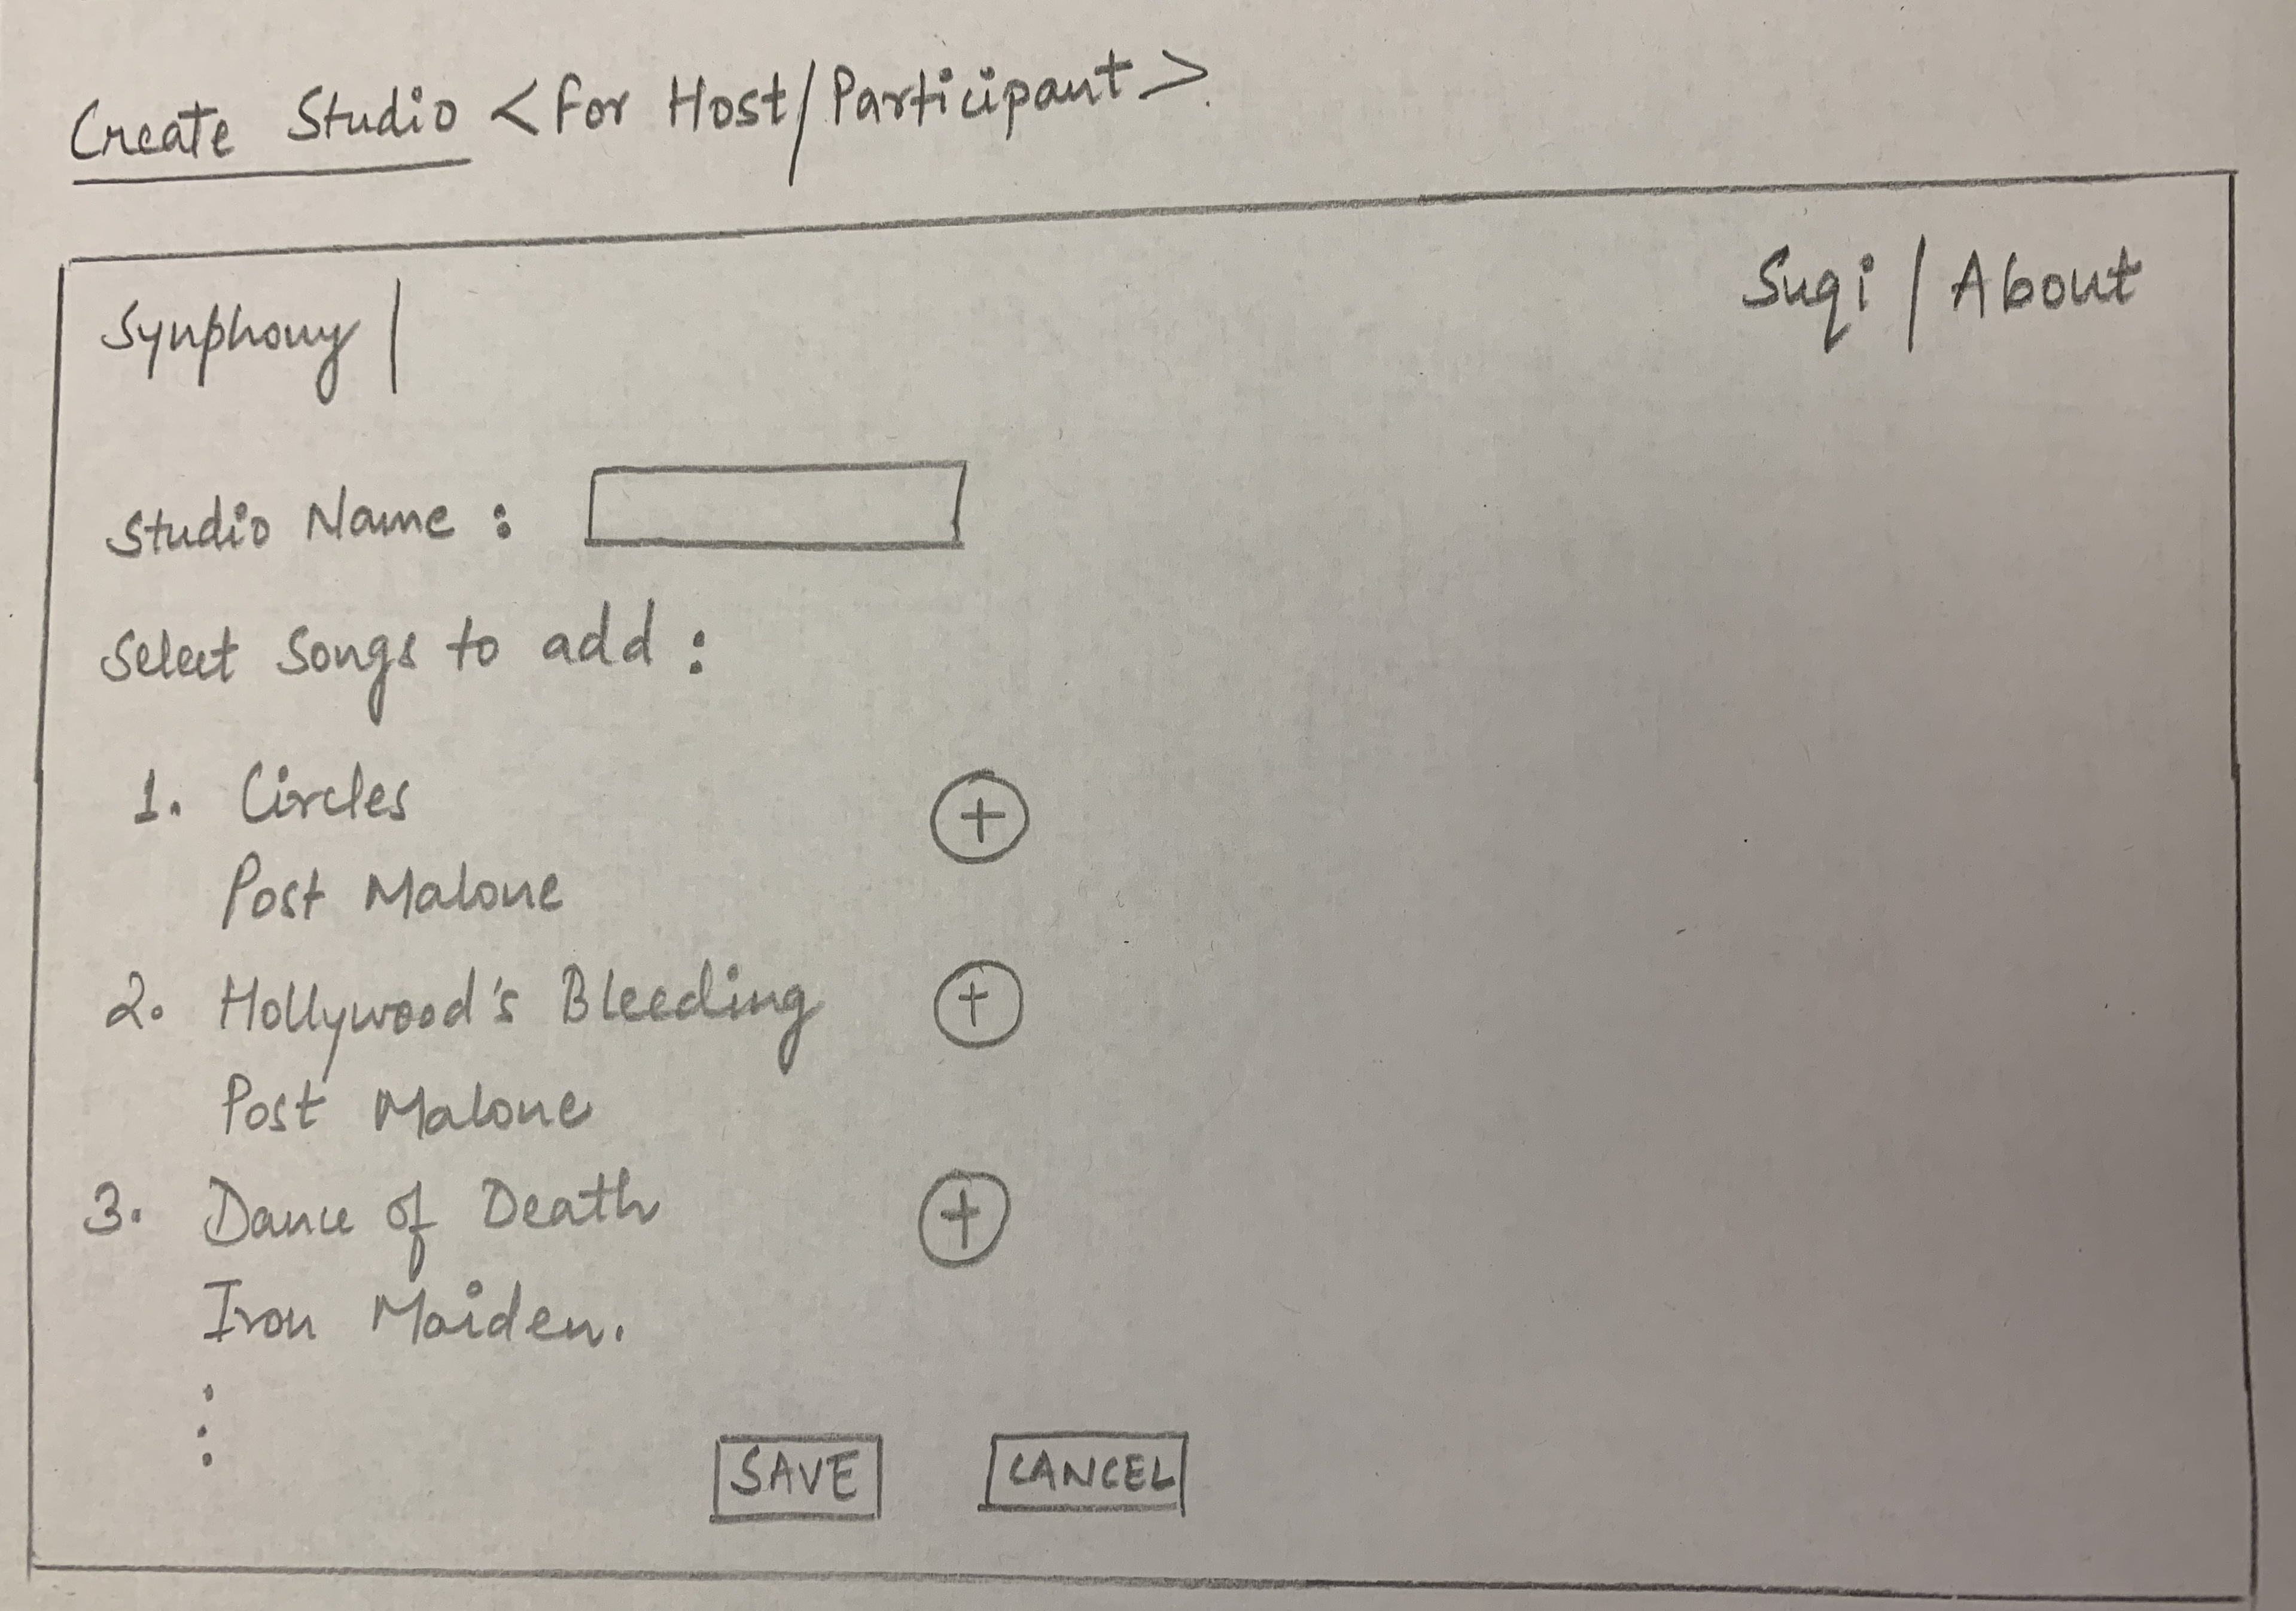 Create Studio <for Host/Participant>.
Synphony |
Suqi | About
Studio Name :
Select Songs to add :
1. Circles
+
Post Malone
2. Hollywood's Bleeding
+
Post Malone
3. Dance of Death
+
Iron Maiden.
SAVE
CANCEL